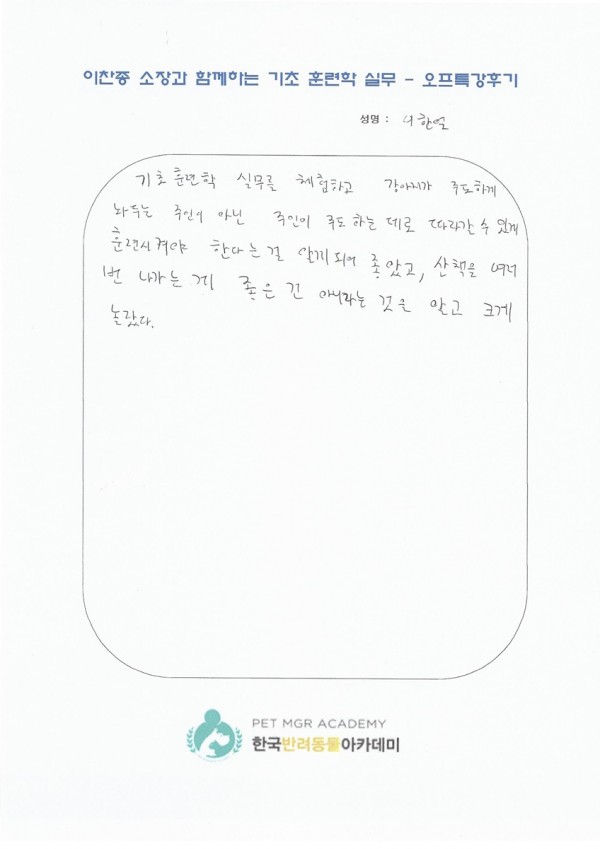 이찬종 소장과 함께하는 기초 훈련학 실무 - 오프특강후기
성명 : 나한열
기초훈련학 실무를 체험하고 강아지가 주도하게
놔두는 주인이 아닌 주인이 주도하는 데로 따라갈 수 있게
훈련시켜야 한다는걸 알게되어 좋았고, 산책을 여러
번 나가는 게 좋은 건 아니라는 것을 알고 크게
놀랐다.
PET MGR ACADEMY
한국반려동물아카데미